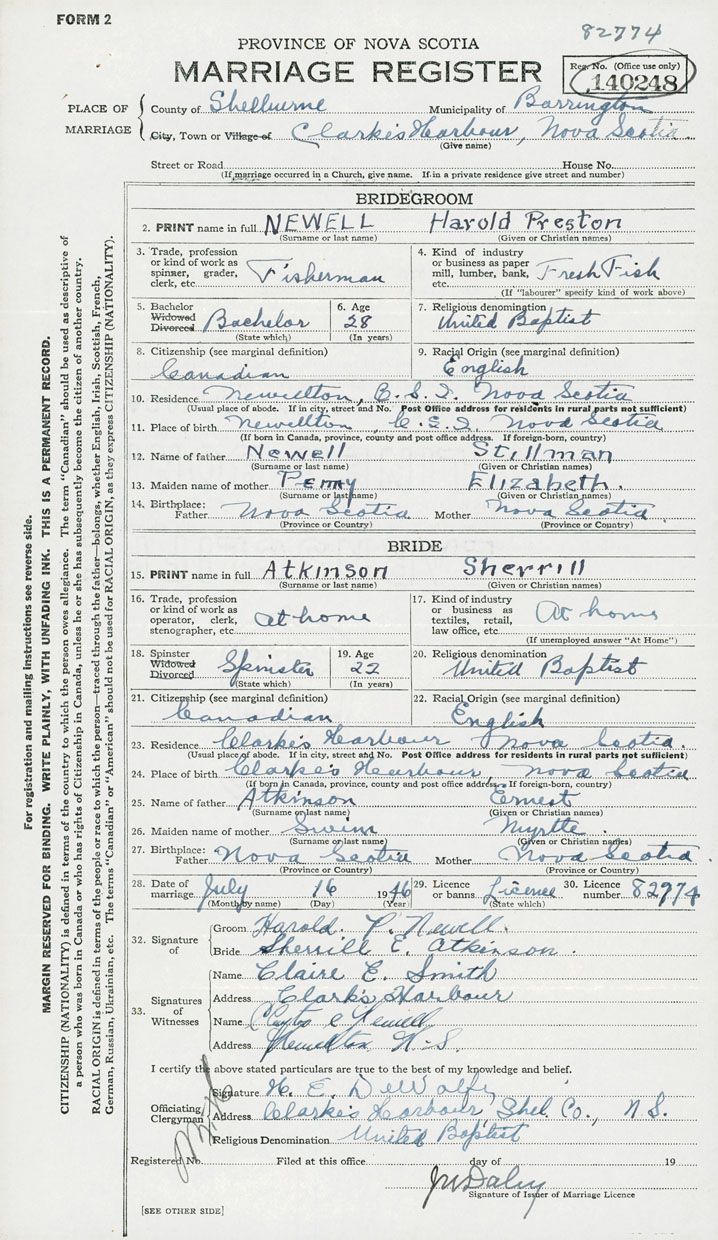 FORM 2
82774
PROVINCE OF NOVA SCOTIA
MARRIAGE REGISTER
Reg. No. (Office use only)
140248
PLACE OF MARRIAGE
County of Shelburne Municipality of Barrington
City, Town or Village of Clarke's Harbour, Nova Scotia
(Give name)
Street or Road House No.
(If marriage occurred in a Church, give name. If in a private residence give street and number)
BRIDEGROOM
2. PRINT name in full NEWELL Harold Preston
(Surname or last name) (Given or Christian names)
3. Trade, profession or kind of work as spinner, grader, clerk, etc. Fisherman
4. Kind of industry or business as paper mill, lumber, bank, etc. Fresh Fish
(If "labourer" specify kind of work above)
5. Bachelor Widowed Divorced Bachelor
(State which)
6. Age 28
(In years)
7. Religious denomination United Baptist
8. Citizenship (see marginal definition) Canadian
9. Racial Origin (see marginal definition) English
10. Residence Newellton, C.S.I. Nova Scotia
(Usual place of abode. If in city, street and No. Post Office address for residents in rural parts not sufficient)
11. Place of birth Newellton, C.S.I. Nova Scotia
(If born in Canada, province, county and post office address. If foreign-born, country)
12. Name of father Newell Stillman
(Surname or last name) (Given or Christian names)
13. Maiden name of mother Penny Elizabeth.
(Surname or last name) (Given or Christian names)
14. Birthplace: Father Nova Scotia Mother Nova Scotia
(Province or Country) (Province or Country)
BRIDE
15. PRINT name in full Atkinson Sherrill
(Surname or last name) (Given or Christian names)
16. Trade, profession or kind of work as operator, clerk, stenographer, etc. at home
17. Kind of industry or business as textiles, retail, law office, etc. At home
(If unemployed answer "At Home")
18. Spinster Widowed Divorced Spinster
(State which)
19. Age 22
(In years)
20. Religious denomination United Baptist
21. Citizenship (see marginal definition) Canadian
22. Racial Origin (see marginal definition) English
23. Residence Clarke's Harbour Nova Scotia.
(Usual place of abode. If in city, street and No. Post Office address for residents in rural parts not sufficient)
24. Place of birth Clarke's Harbour, Nova Scotia
(If born in Canada, province, county and post office address. If foreign-born, country)
25. Name of father Atkinson Ernest
(Surname or last name) (Given or Christian names)
26. Maiden name of mother Swim Myrtle.
(Surname or last name) (Given or Christian names)
27. Birthplace: Father Nova Scotia Mother Nova Scotia
(Province or Country) (Province or Country)
28. Date of marriage July 16 1946
(Month by name) (Day) (Year)
29. Licence or banns License
(State which)
30. Licence number 82774
32. Signature of
Groom Harold P. Newell.
Bride Sherrill E. Atkinson.
33. Signatures of Witnesses
Name Claire E. Smith
Address Clark's Harbour
Name Newell
Address Newellton N.S.
I certify the above stated particulars are true to the best of my knowledge and belief.
Officiating Clergyman
Signature H. E. DeWolfe
Address Clarke's Harbour, Shel. Co., N.S.
Religious Denomination United Baptist
Registered No. Filed at this office day of 19
Signature of Issuer of Marriage Licence
[SEE OTHER SIDE]
For registration and mailing instructions see reverse side.
MARGIN RESERVED FOR BINDING. WRITE PLAINLY, WITH UNFADING INK. THIS IS A PERMANENT RECORD.
CITIZENSHIP (NATIONALITY) is defined in terms of the country to which the person owes allegiance. The term "Canadian" should be used as descriptive of
a person who was born in Canada or who has rights of Citizenship in Canada, unless he or she has subsequently become the citizen of another country.
RACIAL ORIGIN is defined in terms of the people or race to which the person—traced through the father—belongs, whether English, Irish, Scottish, French,
German, Russian, Ukrainian, etc. The terms "Canadian" or "American" should not be used for RACIAL ORIGIN, as they express CITIZENSHIP (NATIONALITY).